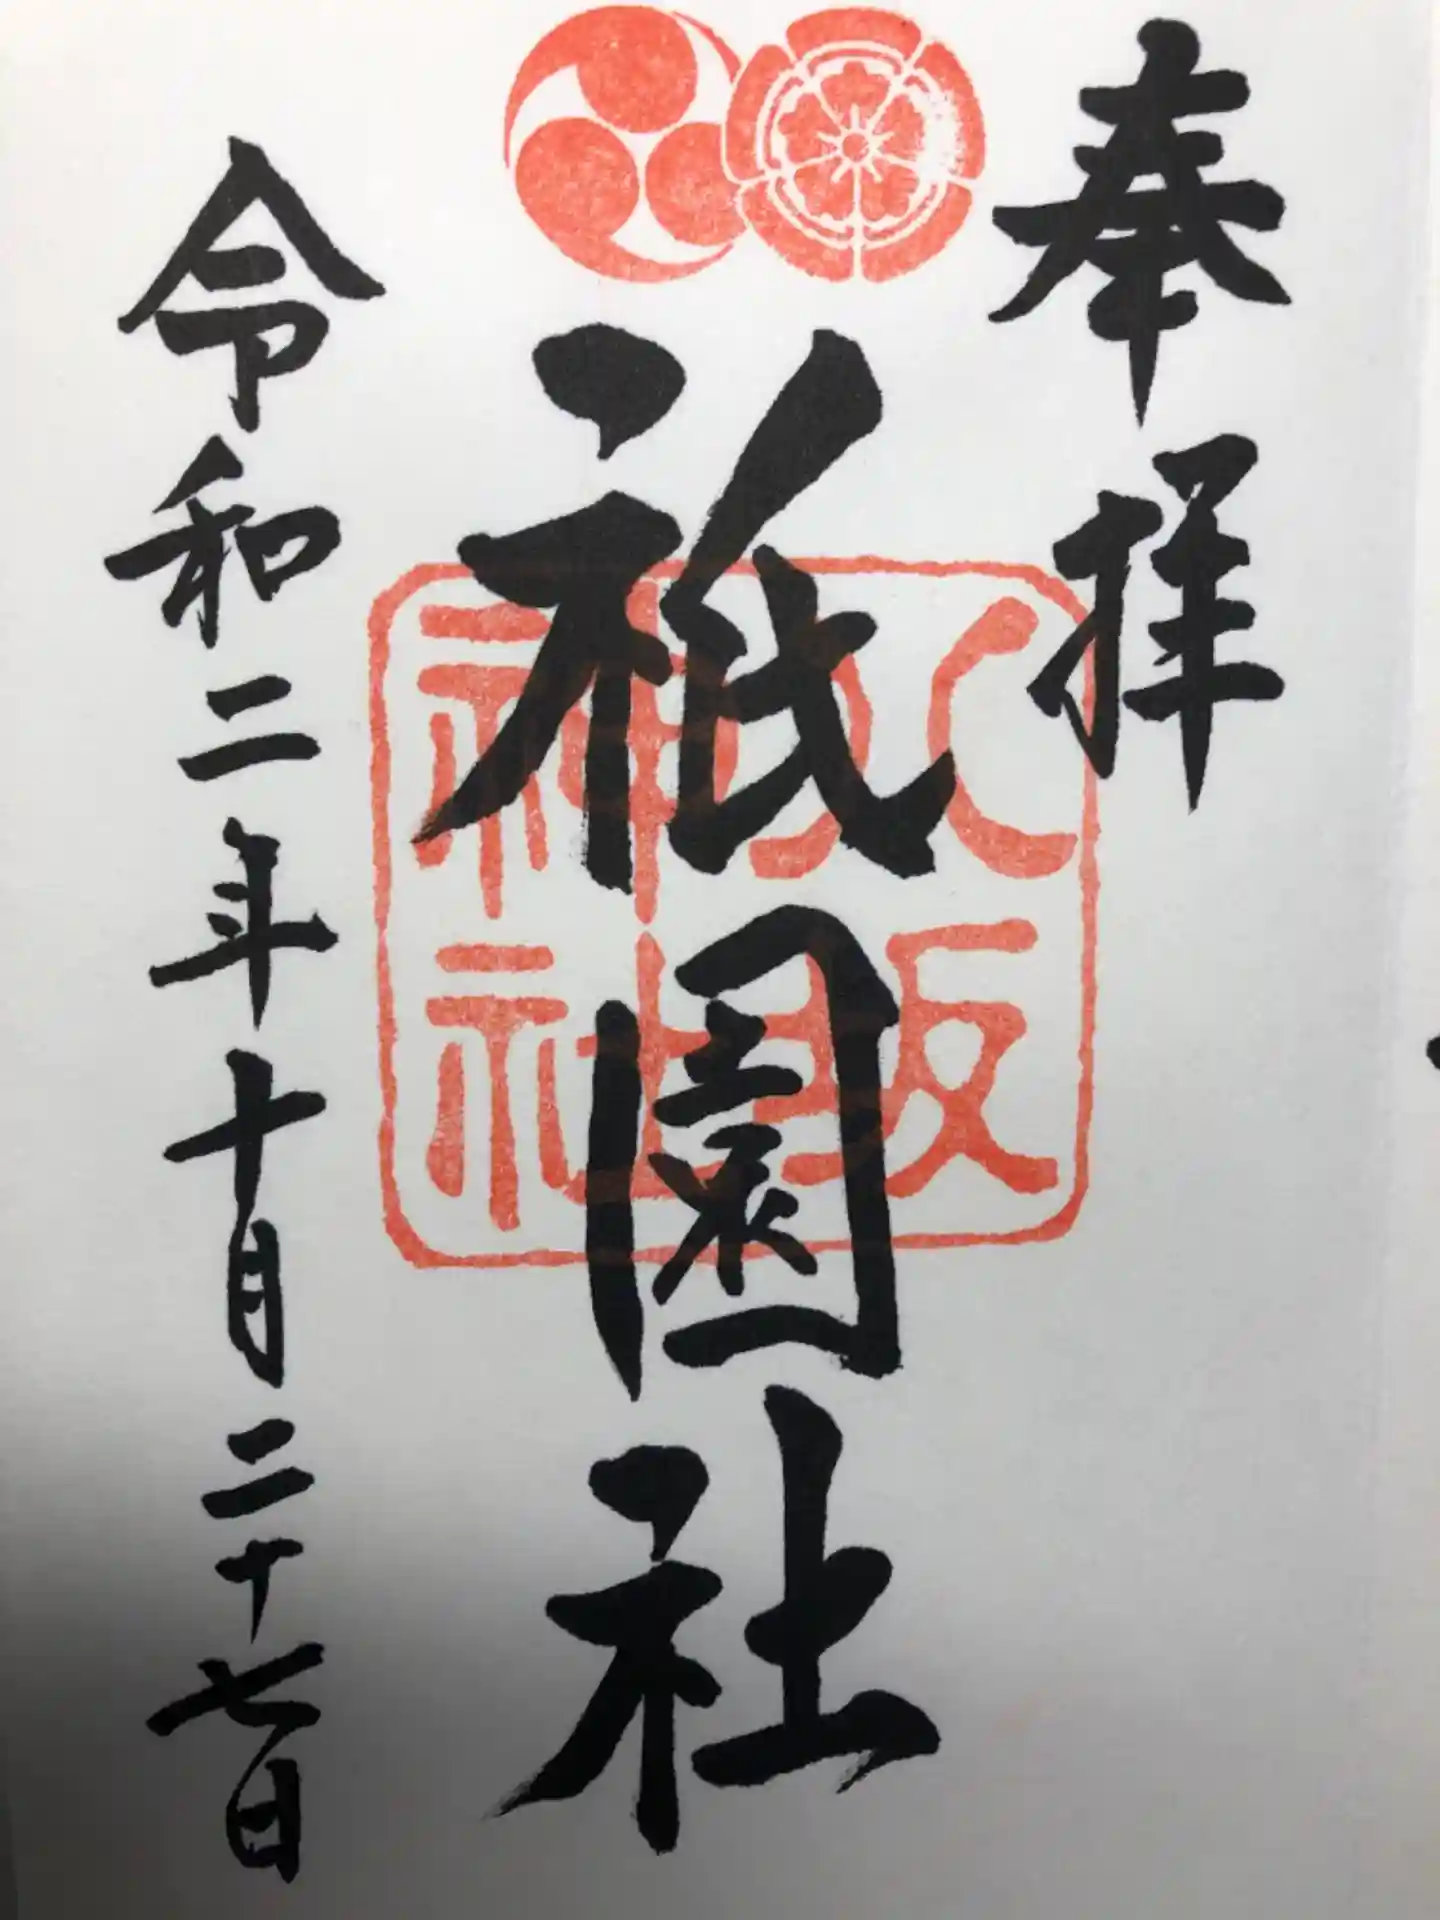 奉拝
祇園社
八坂
神社
令和二年十月二十七日